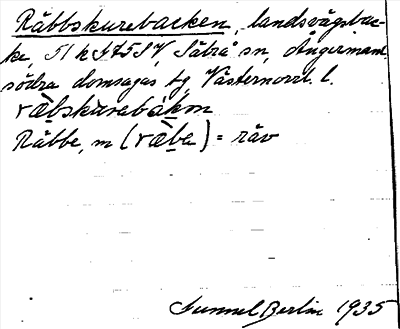 Räbbskurebacken, landsvägsbac-
ke, 51 h 5475 SV, Säbrå sn, Ångermanl.
södra domsagas tg, Västernorrl. l.
ràbskurabákon
Räbbe, m (ràbe) = räv
Gunnel Berlin 1935